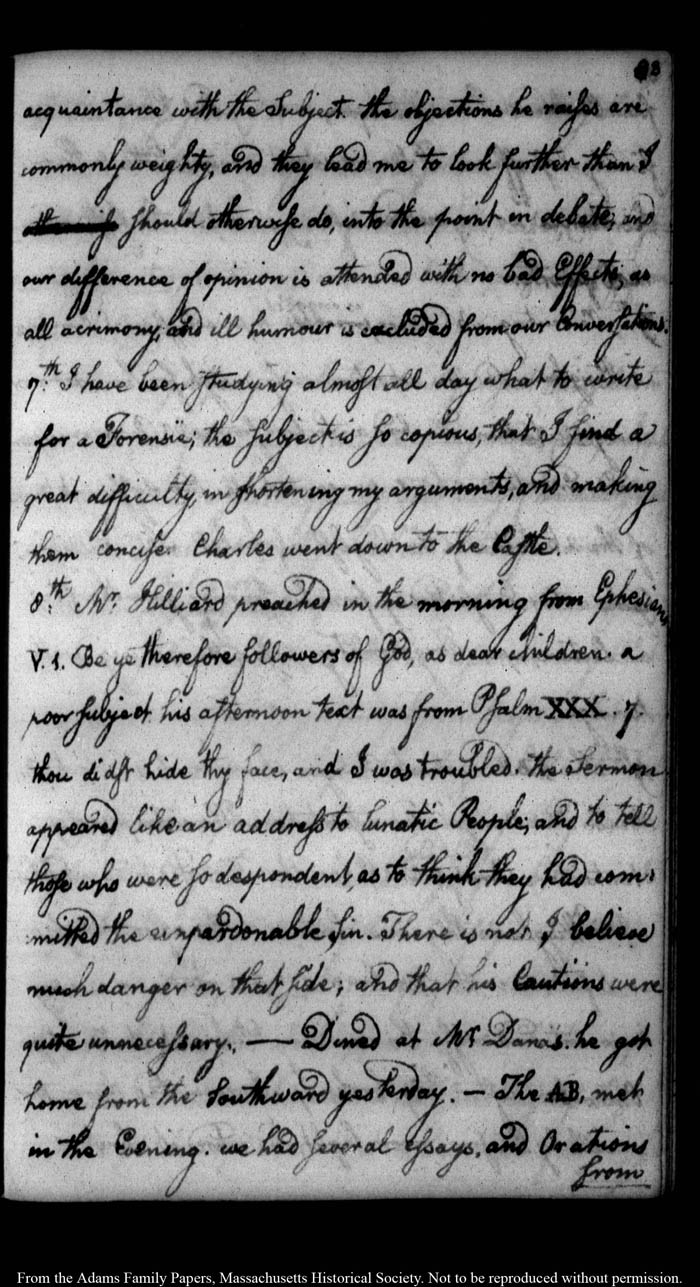 acquaintance with the Subject. the objections he raises are
commonly weighty, and they lead me to look further than I
otherwise should otherwise do, into the point in debate; and
our difference of opinion is attended with no bad Effects, as
all acrimony, and ill humour is excluded from our Conversations.
7.th I have been studying almost all day what to write
for a Forensic; the subject is so copious, that I find a
great difficulty, in shortening my arguments, and making
them concise. Charles went down to the Castle.
8.th Mr. Hilliard preached in the morning from Ephesians
V. 1. Be ye therefore followers of God, as dear children. a
poor subject. his afternoon text was from Psalm XXX. 7.
thou didst hide thy face, and I was troubled. the Sermon
appeared like an address to lunatic People; and to tell
those who were so despondent, as to think they had com-
mitted the unpardonable sin. There is not I believe
much danger on that side; and that his Cautions were
quite unnecessary. — Dined at Mr. Dana's. he got
home from the Southward yesterday. — The AB, met
in the Evening. we had several essays, and Orations
from
From the Adams Family Papers, Massachusetts Historical Society. Not to be reproduced without permission.